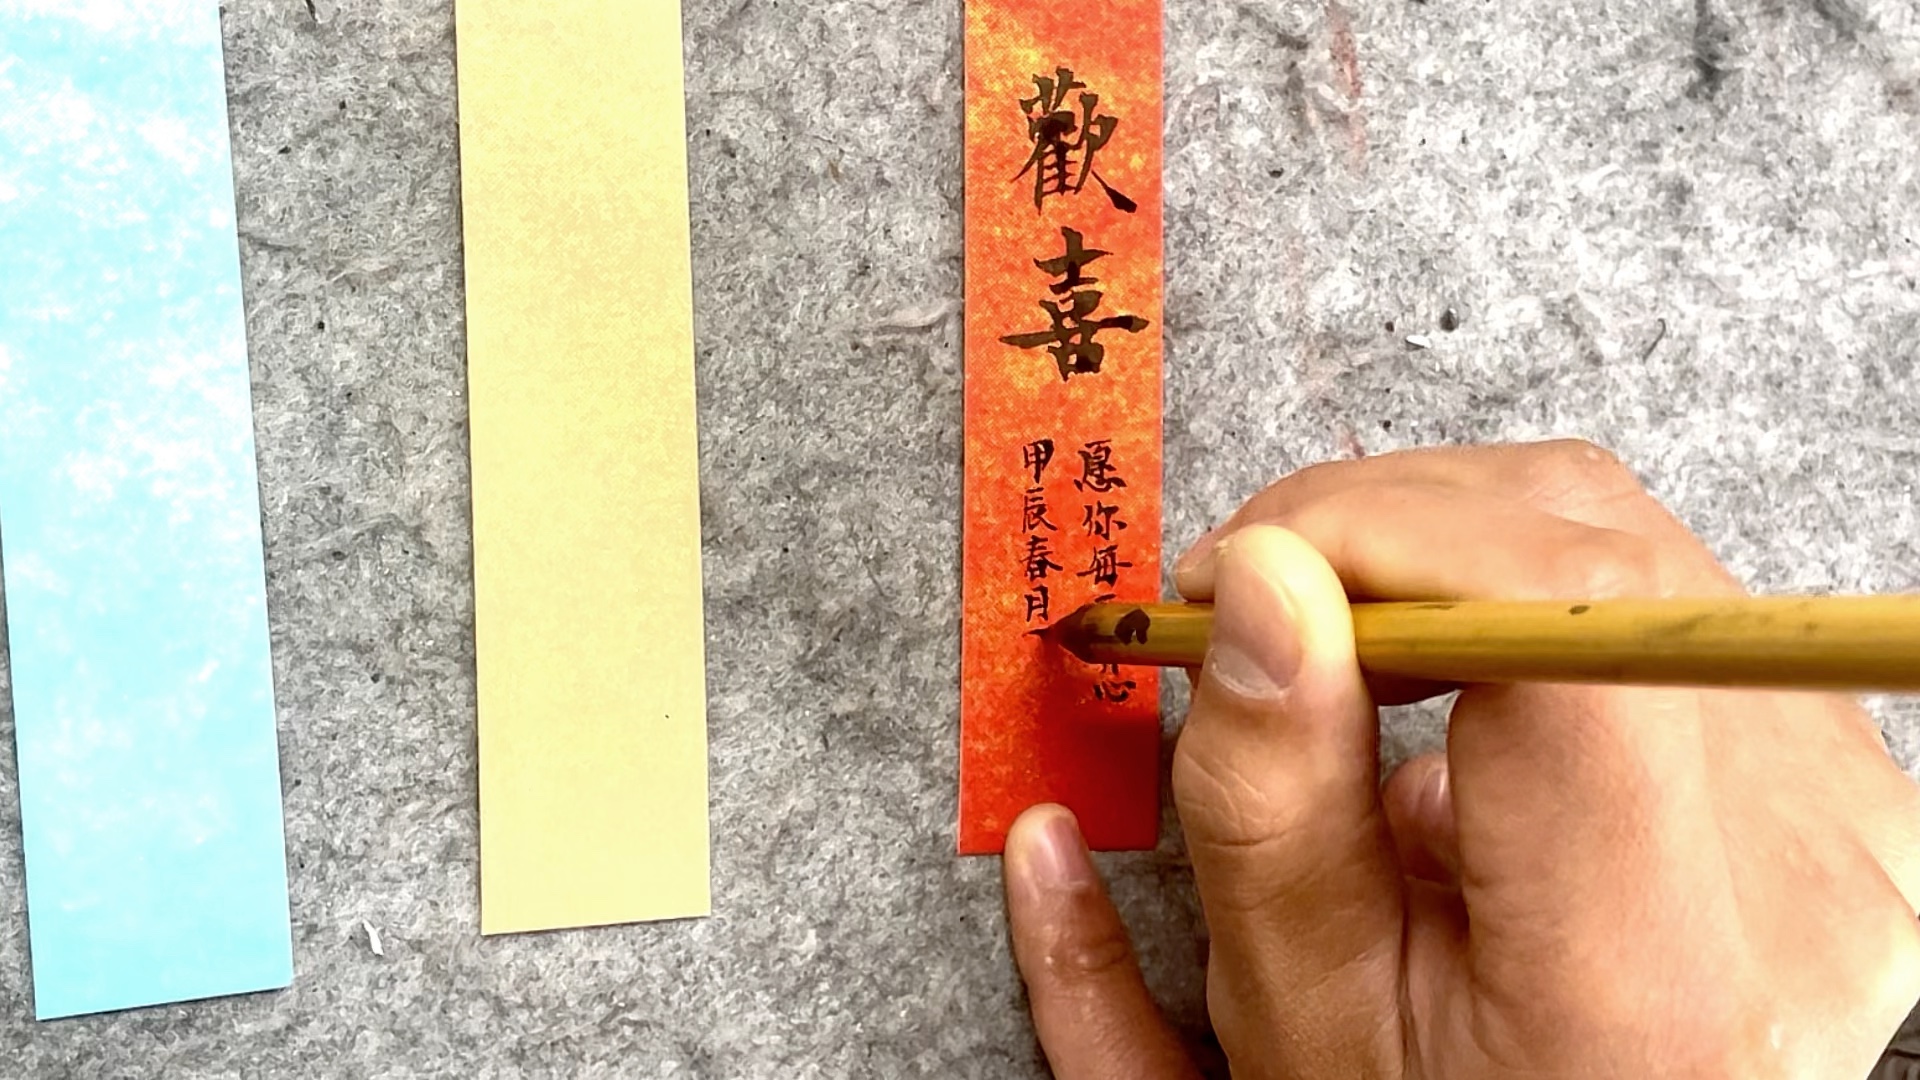 歡喜
愿你每
甲辰春月